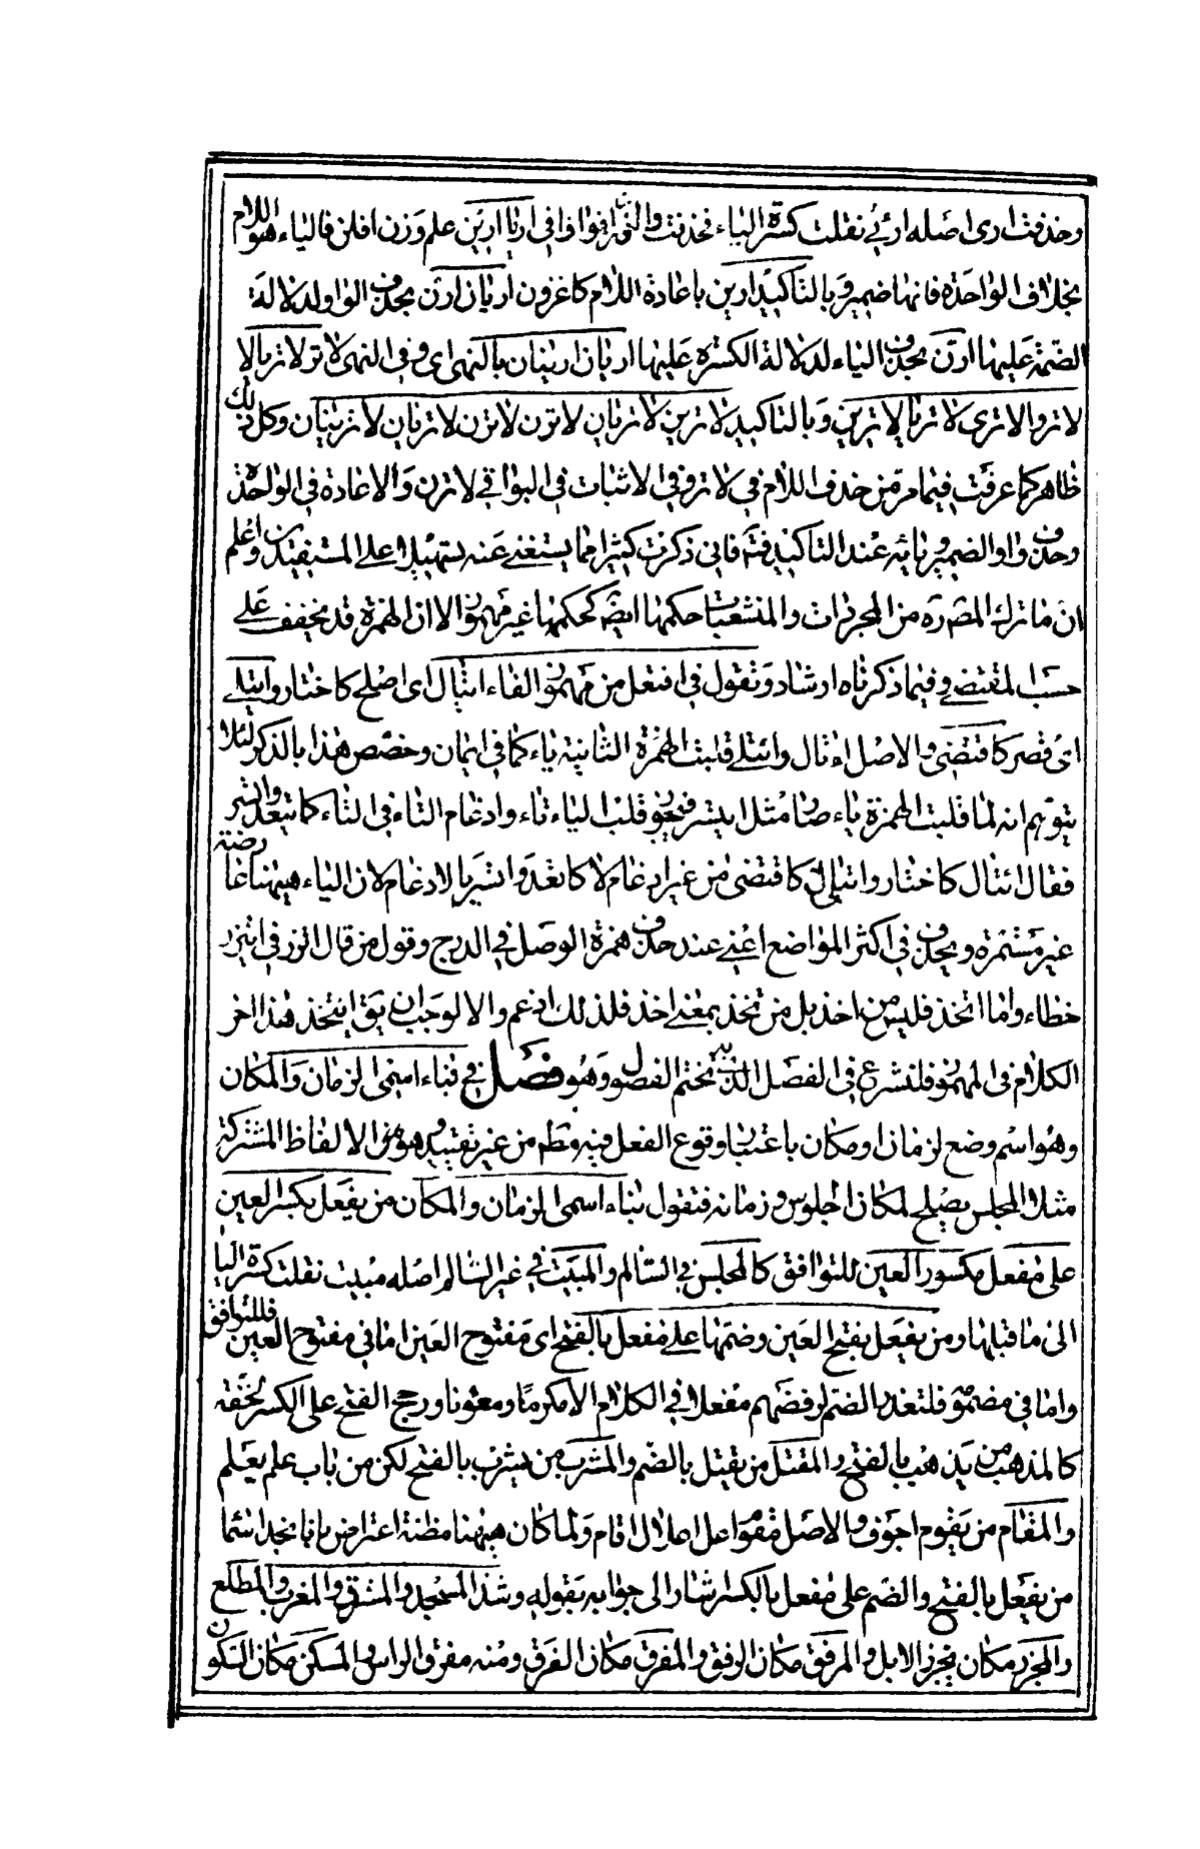 وحذفت اری اصله ارئی نقلت كسرة الیاء فحذفت والنون ارین علی وزن افلن فالیاء هو اللام
بخلاف الواحدة فانها ضمیر وبالتاكید ارین باعادة اللام كاغزون اریان ارن بحذف الواو لدلالة
الضمة علیها ارن بحذف الیاء لدلالة الكسرة علیها اریان ارینان بالنهی ای وفی النهی لا تر لا تریا لا
لا تروا لا تری لا تریا لا ترین وبالتاكید لا ترین لا تریان لا ترون لا ترن لا تریان لا ترینان وكل ذلك
ظاهر كما عرفت فیما مر من حذف اللام فی لا تر وفی الاثبات فی البواقی لا ترن والاعادة فی الواحد
وحذف واو الضمیر ویائه عند التاكید فتم فانی ذكرت كثیرا مما یستغنی عنه تسهیلا علی المستفیدین واعلم
ان ما تركه المصره من المجردات والمنشعبات حكمها ایضا كحكمها غیر مهموز الا ان الهمزة قد تخفف علی
حسب المقتضی وفیما ذكرناه ارشاد وتقول فی افتعل من مهموز الفاء ایتال ای اصلح كاختار وایتلی
ای قصر كاقتضی والاصل اءتال وائتلی قلبت الهمزة الثانیة یاء كما فی ایمان وخصص هذا بالذكر لئلا
یتوهم انه لما قلبت الهمزة یاء صار مثل ایتسر فیجوز قلب الیاء تاء وادغام التاء فی التاء كاتعد واتسر
فقال ائتال كاختار وایتلی كاقتضی من غیر ادغام لا كاتعد واتسر بالادغام لان الیاء هیهنا عارضة
غیر مستمرة ویحذف فی اكثر المواضع اعنی عند حذف همزة الوصل فی الدرج وقول من قال اتزر فی ایتزر
خطاء واما اتخذ فلیس من اخذ بل من تخذ بمعنی اخذ فلذلك ادغم والا لوجب ان یق ایتخذ هذا اخر
الكلام فی المهموز فلنشرع فی الفصل الذی به نختم الفصول وهو فصل فی بناء اسمی الزمان والمكان
وهو اسم وضع لزمان او مكان باعتبار وقوع الفعل فیه مطم من غیر تقیید وهو من الالفاظ المشتركة
مثلا المجلس یصلح لمكان الجلوس وزمانه فتقول بناء اسمی الزمان والمكان من یفعل بكسر العین
علی مفعل مكسور العین للتوافق كالمجلس فی السالم والمبیت فی غیر السالم اصله مبیت نقلت كسرة الیاء
الی ما قبلها ومن یفعل بفتح العین وضمها علی مفعل بالفتح ای مفتوح العین اما فی مفتوح العین فللتوافق
واما فی مضمومه فلتعذر الضم لرفضهم مفعلا فی الكلام الا مكرما ومعونا ورجح الفتح علی الكسر لخفته
كالمذهب من یذهب بالفتح والمقتل من یقتل بالضم والمشرب من یشرب بالفتح لكن من باب علم یعلم
والمقام من یقوم اجوف والاصل مقوم اعل اعلال اقام ولما كان هیهنا مظنة اعتراض بانا نجد اسما
من یفعل بالفتح والضم علی مفعل بالكسر اشار الی جوابه بقوله وشذ المسجد والمشرق والمغرب والمطلع
والمجزر مكان یجزر الابل والمرفق مكان الرفق والمفرق مكان الفرق ومنه مفرق الراس والمسكن مكان السكون